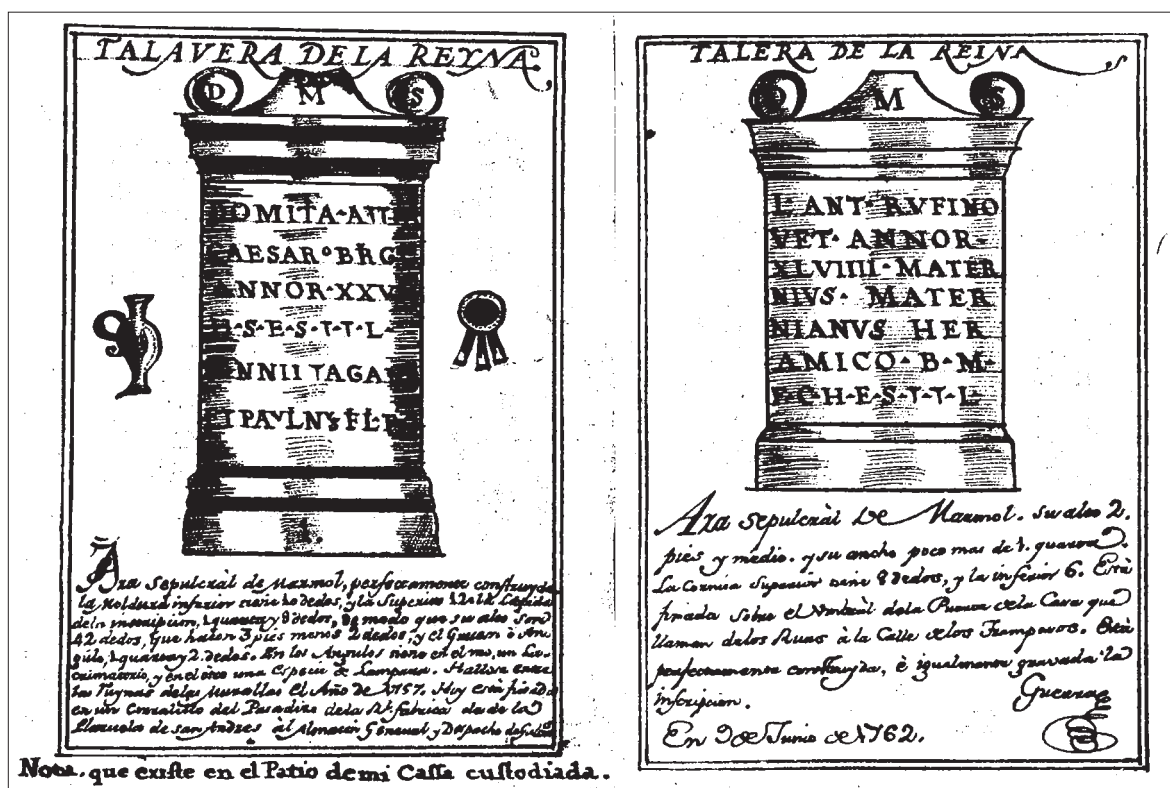 TALAVERA DE LA REYNA.
D M S
DMITA·ATT
AESAR° BRG
NNOR·XXV
S·E·S·T·T·L·
NNII TAGA
PAVLNVS F·L·
Ara Sepulcràl de Marmol, perfectamente construyda
la Moldura inferior tiene 10 dedos, y la Superior 12
dela inscripcion, quarta y 8 dedos, de modo que su alto son
42 dedos, que hacen 3 pies menos 2 dedos; y el Grueso ò An-
gulo, quarta y 2 dedos. En los Angulos tiene en el uno, un La-
crimatorio, y en el otro una Especie de Lampara. Hallose entre
las Ruynas delas Murallas el Año de 1757. Hoy està fixada
en un Corralito del Pasadizo dela Rl. fabrica desde la
Plazuela de san Andres àl Almacen General y Despacho de
Nota. que existe en el Patio de mi Cassa custodiada.
TALERA DE LA REINA
D M S
L·ANT·RVFINO
VET·ANNOR·
XLVIIII·MATER
NIVS·MATER
NIANVS HER
AMICO·B·M·
F·C·H·E·S·T·T·L·
Ara sepulcràl de Marmol. su alto 2.
pies y medio. y su ancho poco mas de 1. quarta.
La Cornisa Superior tiene 8 dedos, y la inferior 6. Està
fixada sobre el Umbràl dela Puerta dela Casa que
llaman delas Ruas à la Calle delos Tromperos. Està
perfectamente construyda, è igualmente gravada la
inscripcion.
Guerra
En 9 de Junio de 1762.